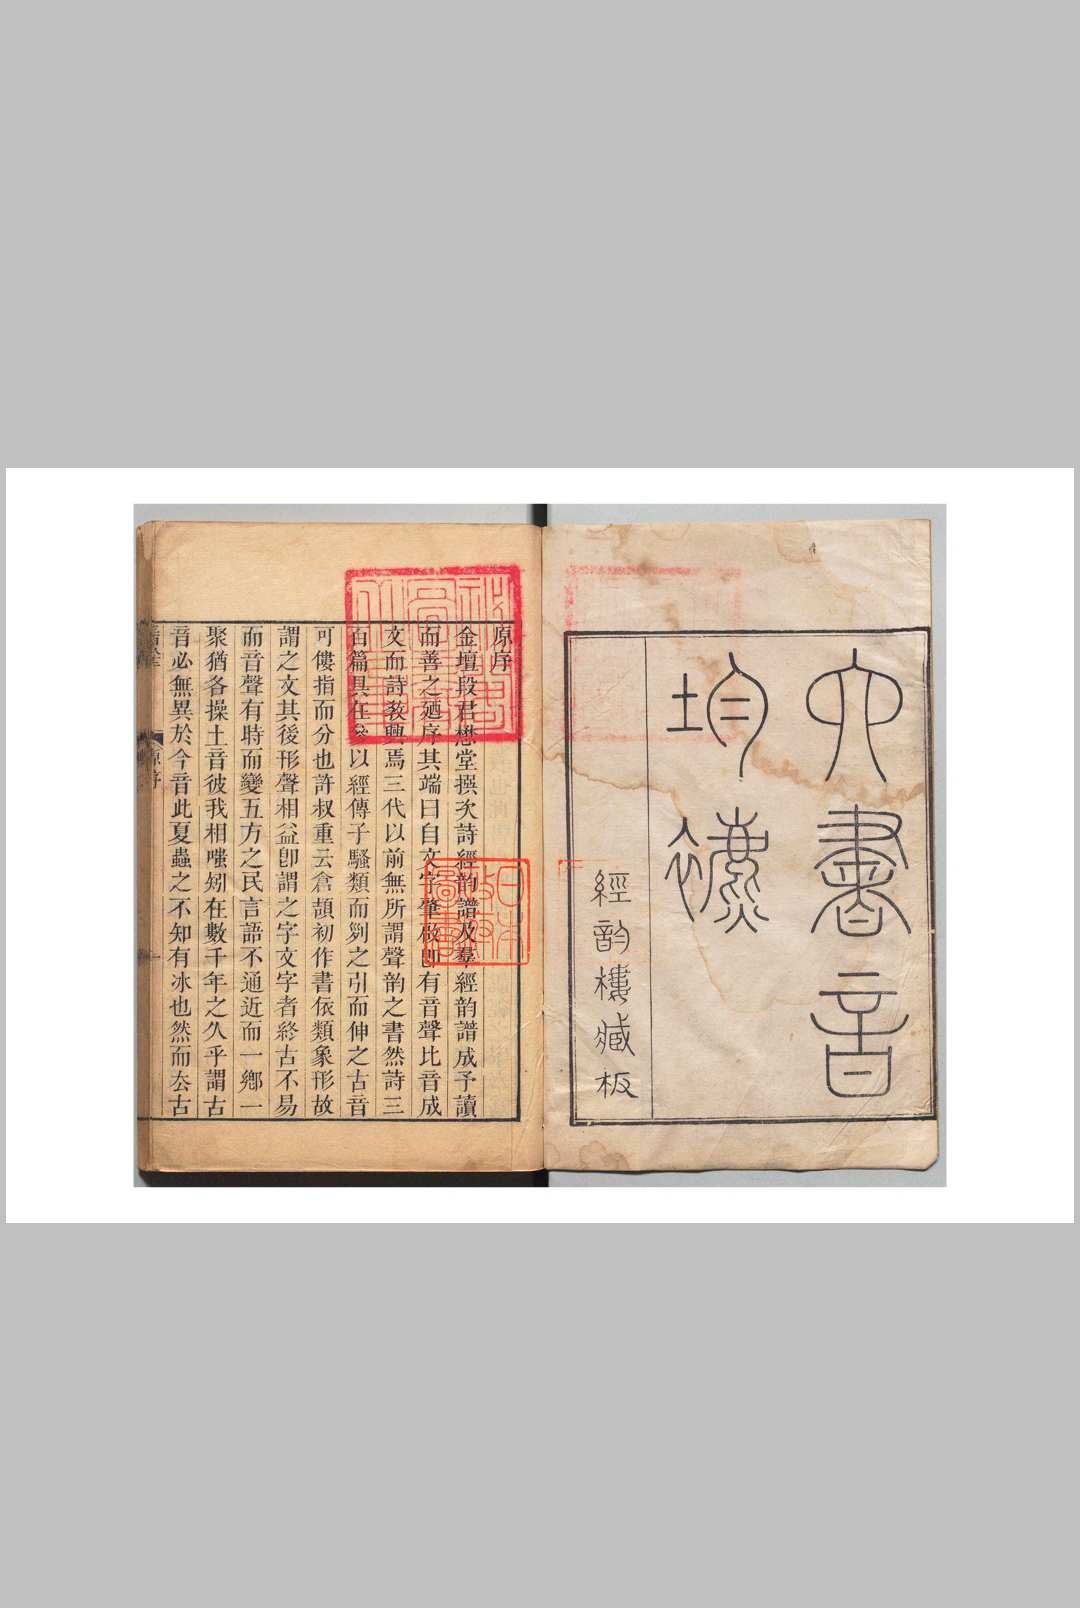 六書音
均表
經韵樓臧板
原序
金壇段君懋堂撰次詩經韵譜及羣經韵譜成予讀
而善之廼序其端曰自文字肇啟卽有音聲比音成
文而詩敎興焉三代以前無所謂聲韵之書然詩三
百篇具在參以經傳子騷類而剡之引而伸之古音
可僂指而分也許叔重云倉頡初作書依類象形故
謂之文其後形聲相益卽謂之字文字者終古不易
而音聲有時而變五方之民言語不通近而一鄉一
聚猶各操土音彼我相嗤矧在數千年之久乎謂古
音必無異於今音此夏蟲之不知有冰也然而去古
原序